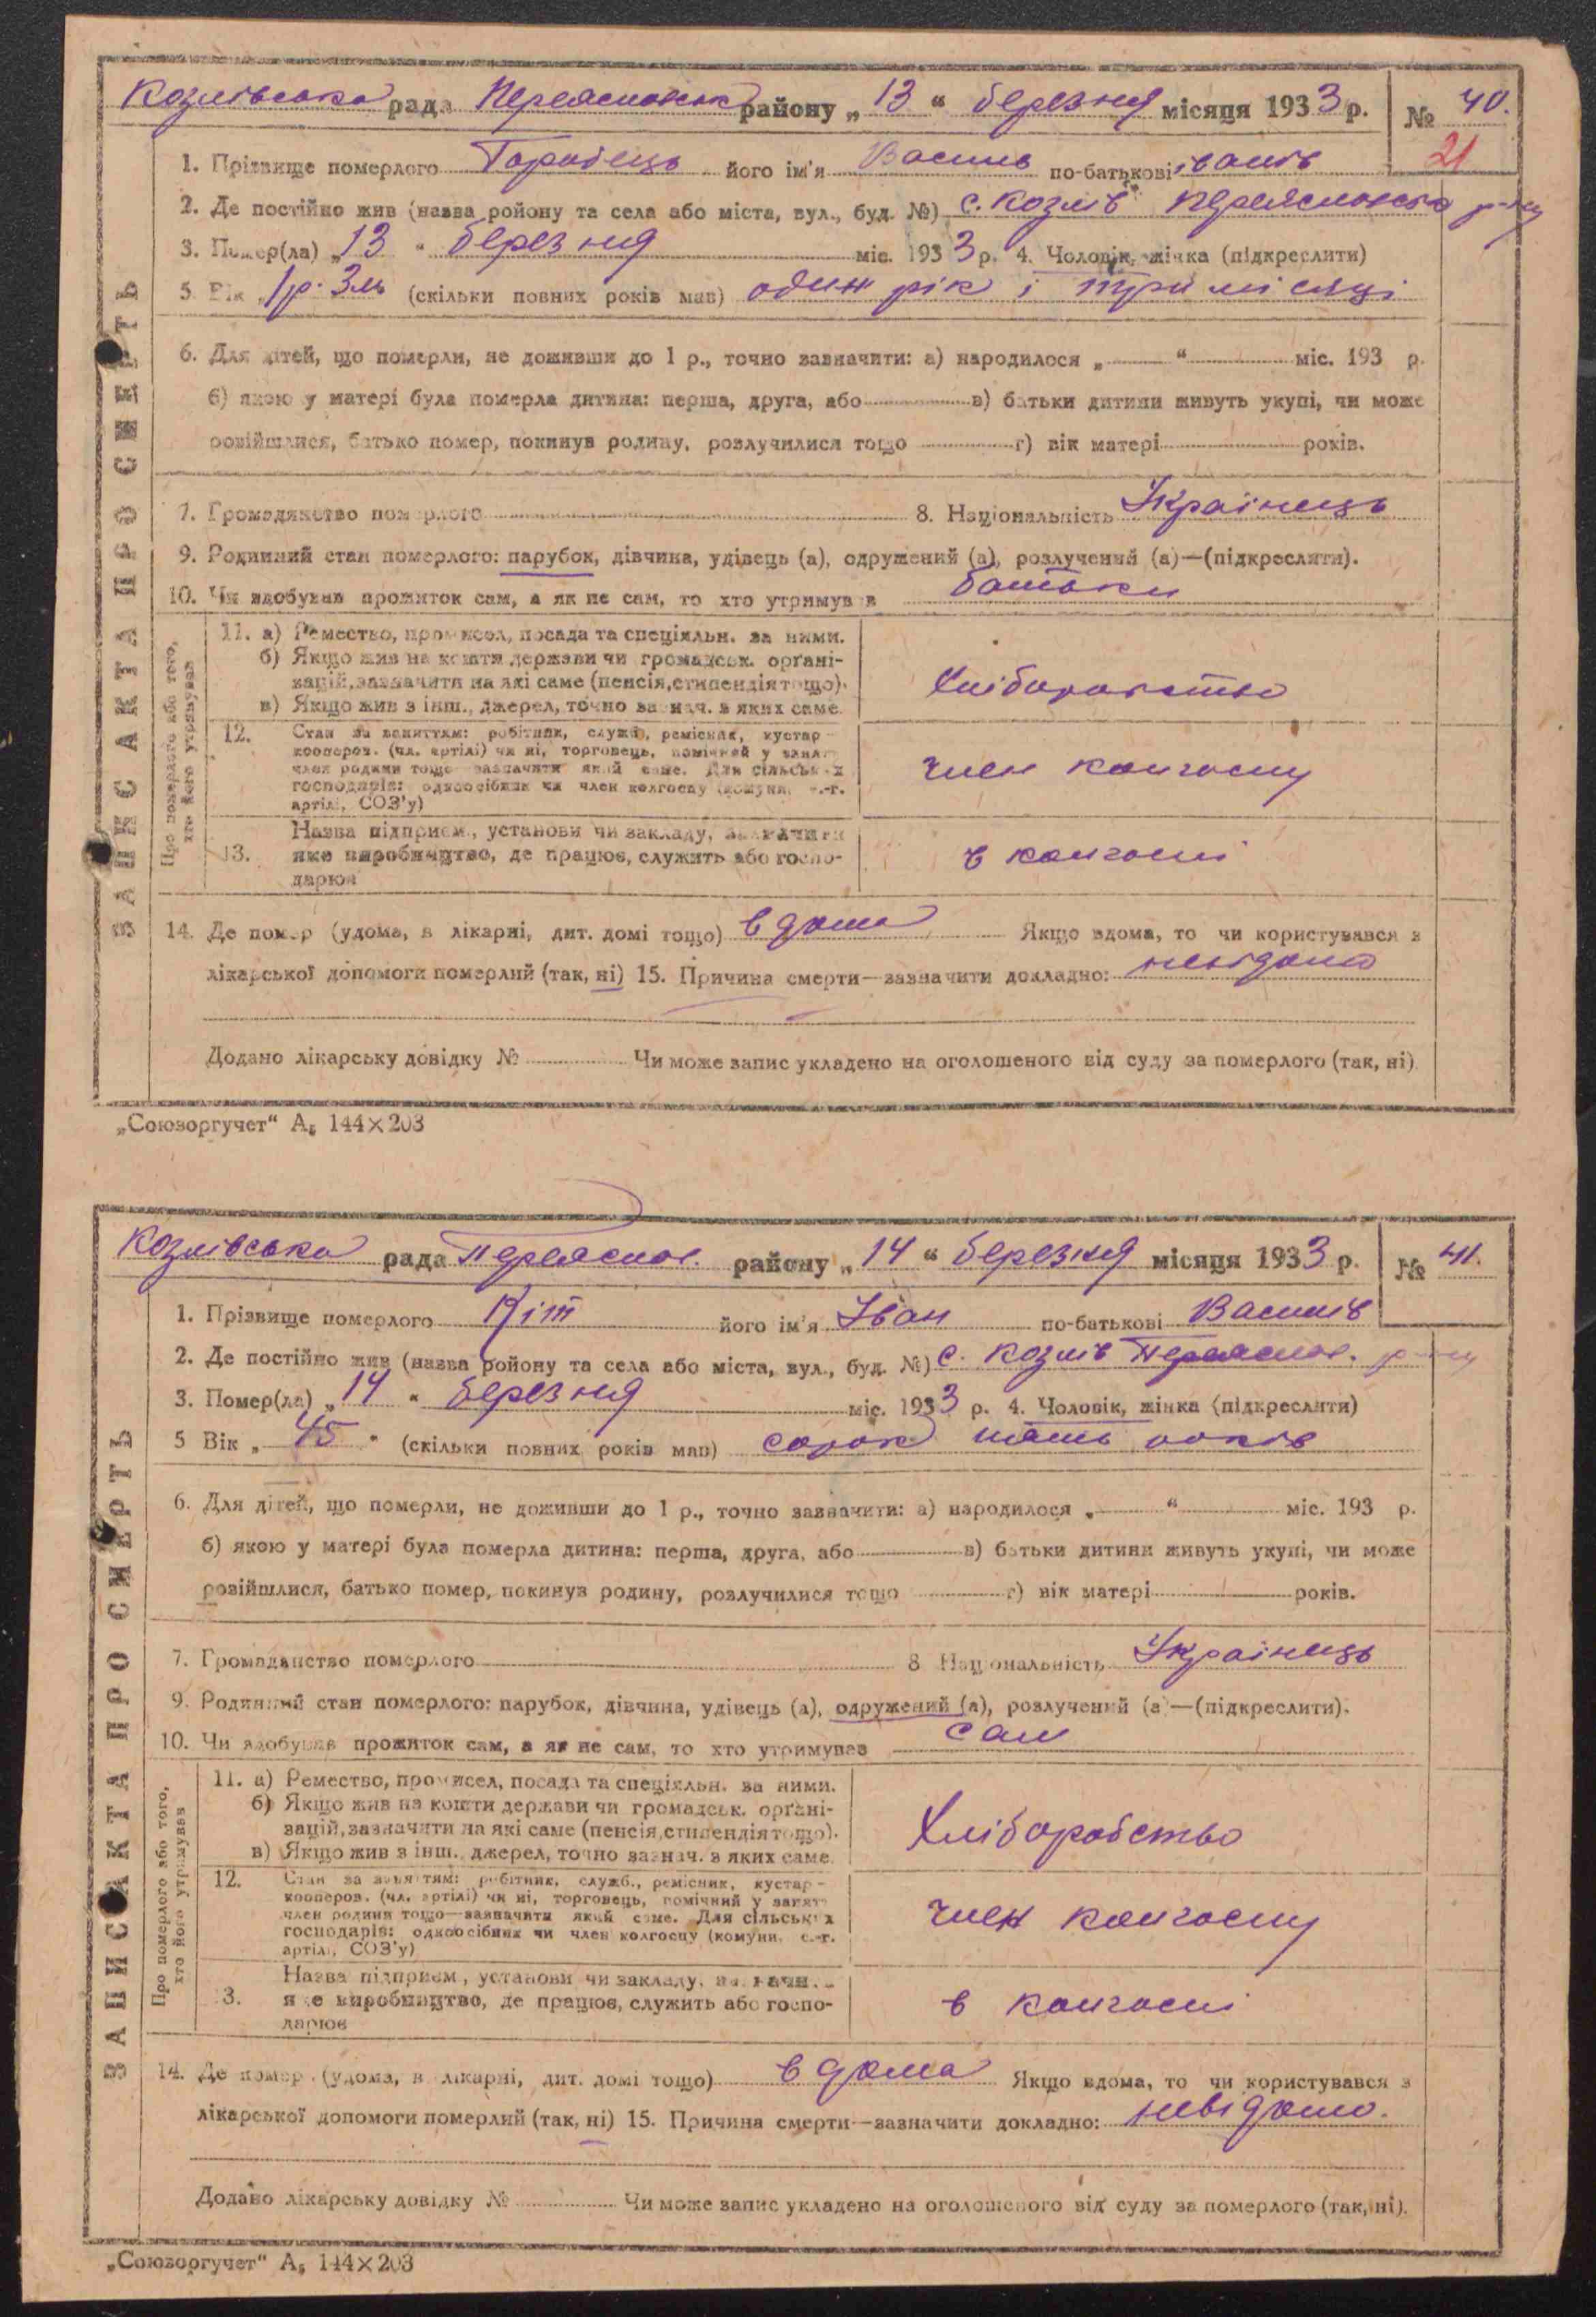 Козлівська рада Переяславськ району „13“ березня місяця 1933 р. № 40.
21
1. Прізвище померлого Горобець його ім'я Василь по-батькові Іванів
2. Де постійно жив (назва ройону та села або міста, вул., буд. №) с. Козлів Переяславсько р-ну
3. Помер(ла) „13“ березня міс. 1933 р. 4. Чоловік, жінка (підкреслити)
5 Вік „1р. 3м (скільки повних років мав) один рік і три місяці
6. Для дітей, що померли, не доживши до 1 р., точно зазначити: а) народилося „ “ міс. 193 р.
б) якою у матері була померла дитина: перша, друга, або в) батьки дитини живуть укупі, чи може
розійшлися, батько помер, покинув родину, розлучилися тощо г) вік матері років.
7. Громадянство померлого 8. Національність Українець
9. Родинний стан померлого: парубок, дівчина, удівець (а), одружений (а), розлучений (а)—(підкреслити).
10. Чи здобував прожиток сам, а як не сам, то хто утримував батьки
ЗАПИС АКТА ПРО СМЕРТЬ
Про померлого або того,
хто його утримував
11. а) Ремество, промисел, посада та спеціяльн. за ними.
б) Якщо жив на кошти держави чи громадськ. органі-
зацій, зазначити на які саме (пенсія, стипендія тощо).
в) Якщо жив з інш., джерел, точно зазнач. з яких саме.
Хліборобство
12. Стан за заняттям: робітник, служб., ремісник, кустар-
кооперов. (чл. артілі) чи ні, торговець, помічний у занят.
член родини тощо—зазначити який саме. Для сільських
господарів: одноосібник чи член колгоспу (комуни, с.-г.
артілі, СОЗ'у)
член колгоспу
13. Назва підприєм., установи чи закладу, зазначити
яке виробництво, де працює, служить або госпо-
дарює
в колгоспі
14. Де помер (удома, в лікарні, дит. домі тощо) в дома Якщо вдома, то чи користувався з
лікарської допомоги померлий (так, ні) 15. Причина смерти—зазначити докладно: невідомо
Додано лікарську довідку № Чи може запис укладено на оголошеного від суду за померлого (так, ні).
„Союзоргучет“ А₅ 144×203
Козлівська рада Переяслав. району „14“ березня місяця 1933 р. № 41.
1. Прізвище померлого Кіт його ім'я Іван по-батькові Василів
2. Де постійно жив (назва ройону та села або міста, вул., буд. №) с. Козлів Переяслав. р-ну
3. Помер(ла) „14“ березня міс. 1933 р. 4. Чоловік, жінка (підкреслити)
5 Вік „45“ (скільки повних років мав) сорок пять років
6. Для дітей, що померли, не доживши до 1 р., точно зазначити: а) народилося „ “ міс. 193 р.
б) якою у матері була померла дитина: перша, друга, або в) батьки дитини живуть укупі, чи може
розійшлися, батько помер, покинув родину, розлучилися тощо г) вік матері років.
7. Громадянство померлого 8 Національність Українець
9. Родинний стан померлого: парубок, дівчина, удівець (а), одружений (а), розлучений (а)—(підкреслити).
10. Чи здобував прожиток сам, а як не сам, то хто утримував сам
ЗАПИС АКТА ПРО СМЕРТЬ
Про померлого або того,
хто його утримував
11. а) Ремество, промисел, посада та спеціяльн. за ними.
б) Якщо жив на кошти держави чи громадськ. органі-
зацій, зазначити на які саме (пенсія, стипендія тощо).
в) Якщо жив з інш., джерел, точно зазнач. з яких саме.
Хліборобство
12. Стан за заняттям: робітник, служб., ремісник, кустар-
кооперов. (чл. артілі) чи ні, торговець, помічний у занят.
член родини тощо—зазначити який саме. Для сільських
господарів: одноосібник чи член колгоспу (комуни, с.-г.
артілі, СОЗ'у)
член колгоспу
13. Назва підприєм., установи чи закладу, зазначити
яке виробництво, де працює, служить або госпо-
дарює
в колгоспі
14. Де помер (удома, в лікарні, дит. домі тощо) в дома Якщо вдома, то чи користувався з
лікарської допомоги померлий (так, ні) 15. Причина смерти—зазначити докладно: невідомо.
Додано лікарську довідку № Чи може запис укладено на оголошеного від суду за померлого (так, ні).
„Союзоргучет“ А₅ 144×203